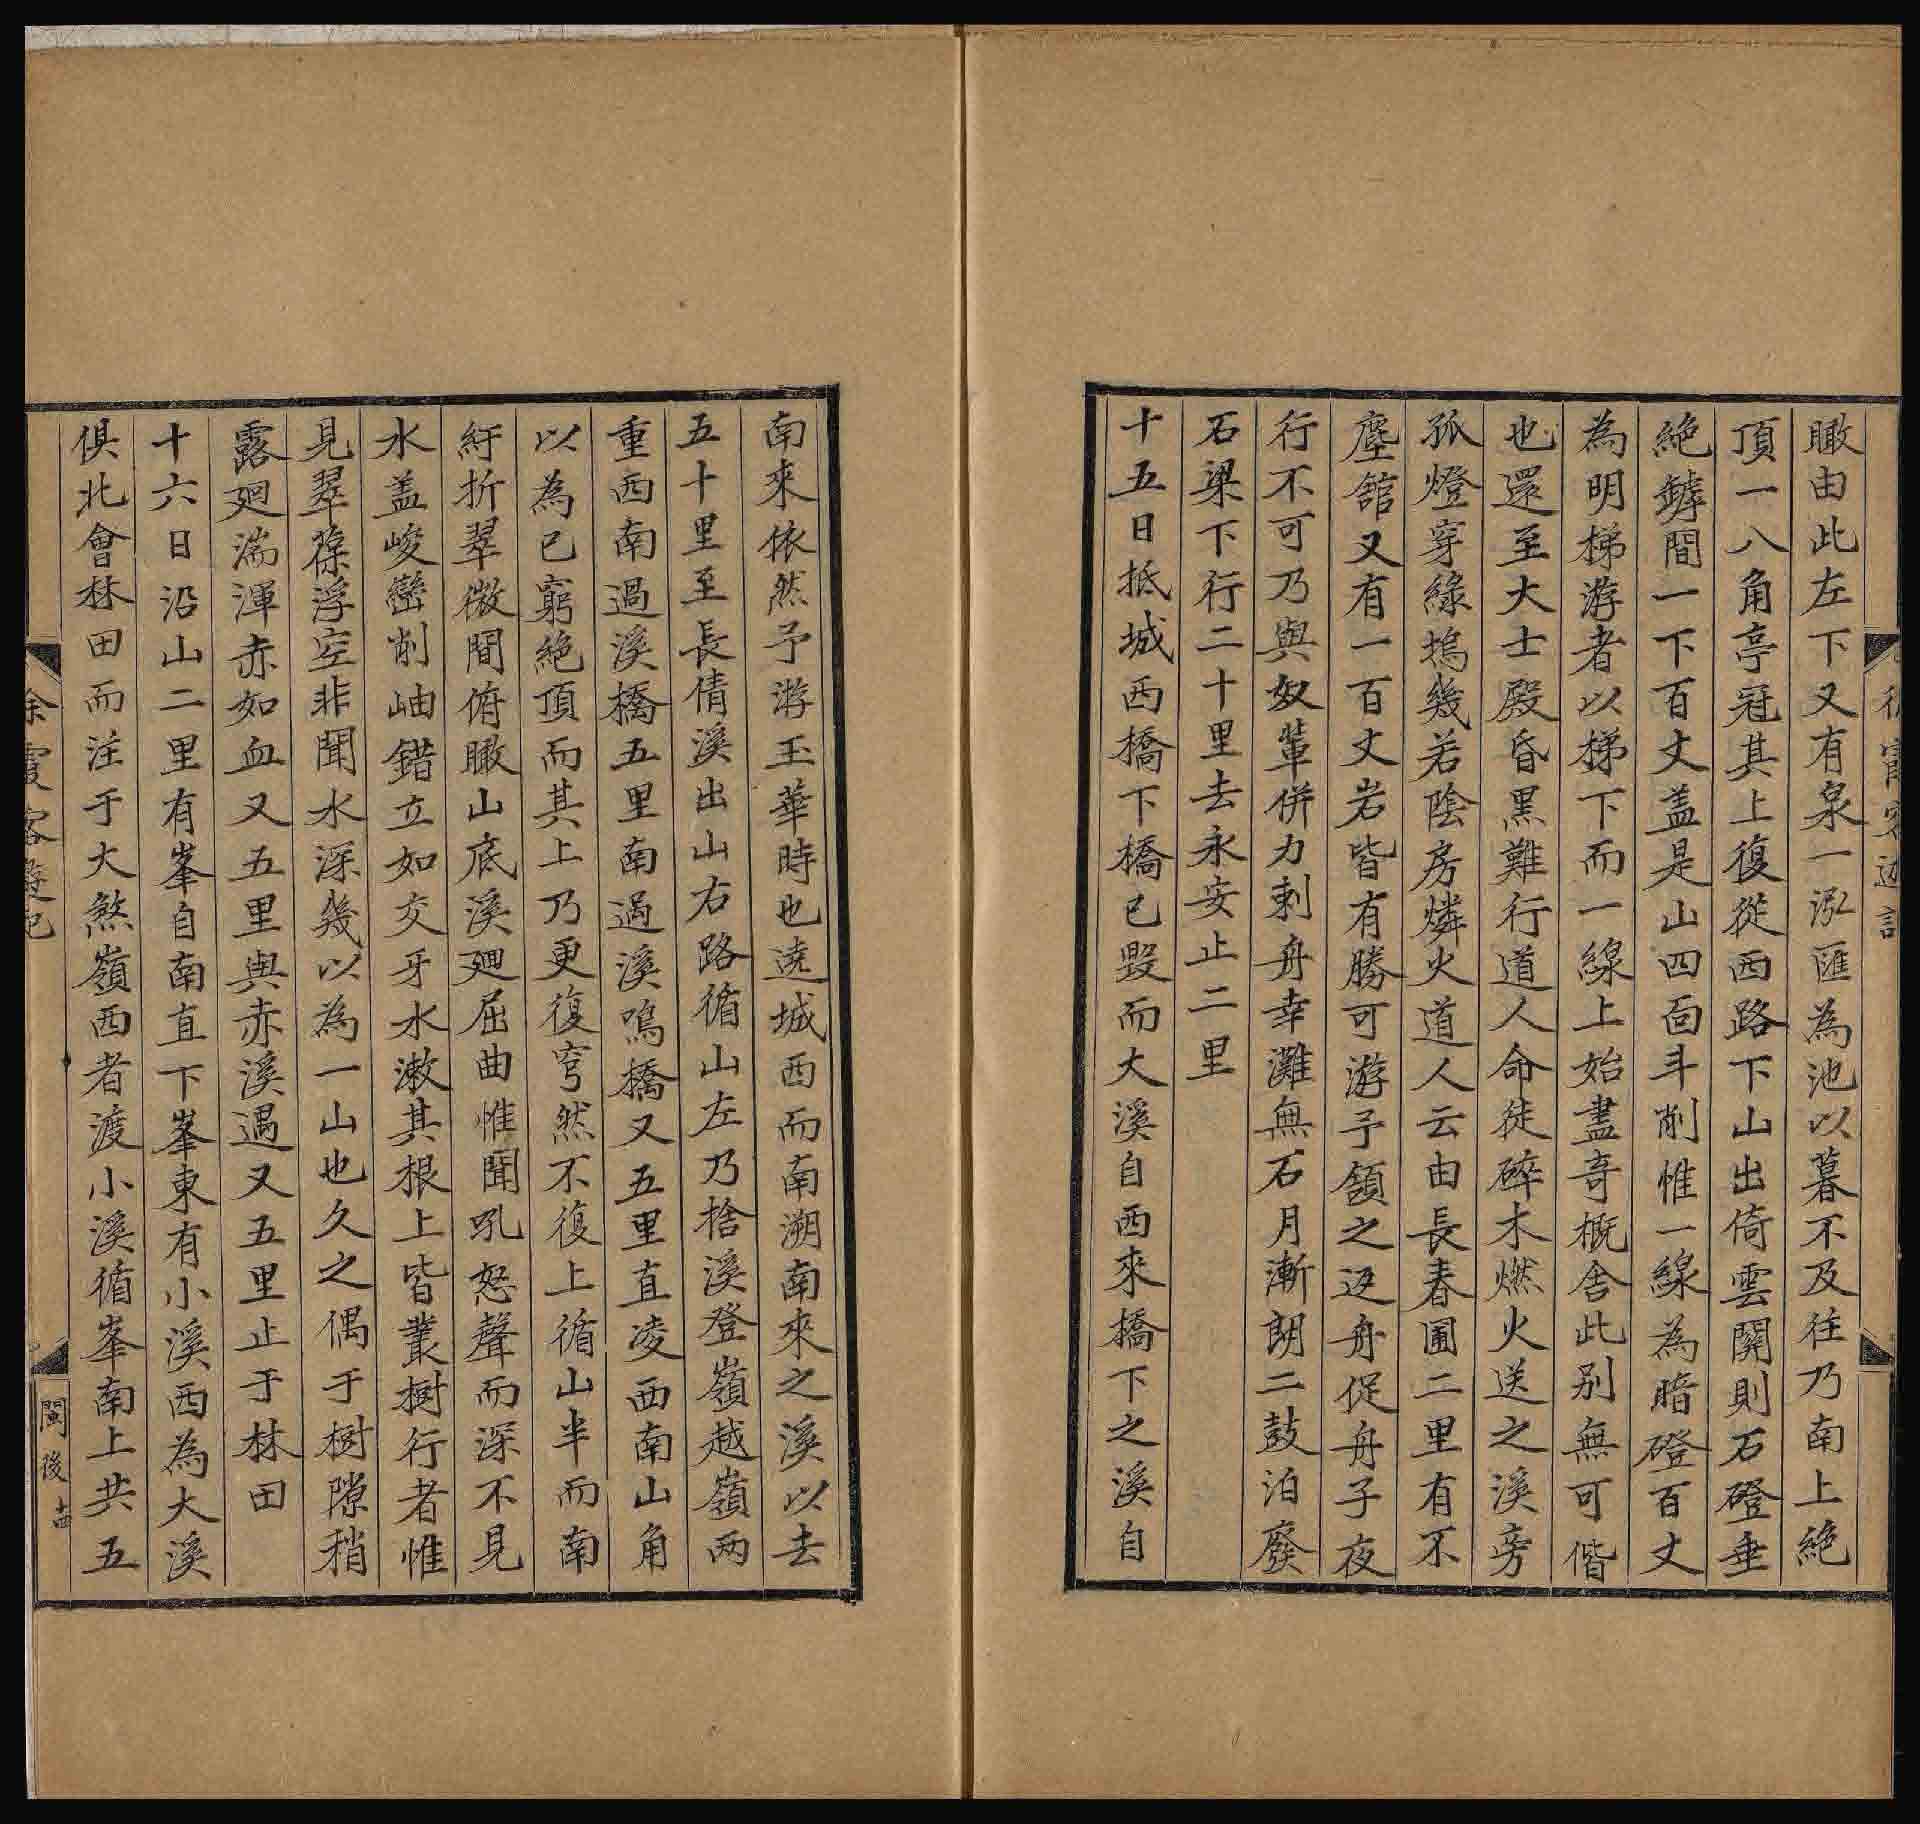 瞰由此左下又有泉一泓匯為池以暮不及往乃南上絶
頂一八角亭冠其上復從西路下山出倚雲關則石磴垂
絶罅間一下百丈盖是山四面斗削惟一線為暗磴百丈
為明梯游者以梯下而一線上始盡奇概舍此别無可偕
也還至大士殿昏黒難行道人命徒碎木燃火送之溪旁
孤燈穿緑塢幾若陰房燐火道人云由長春圃二里有不
塵舘又有一百丈岩皆有勝可游予頷之返舟促舟子夜
行不可乃與奴輩併力刺舟幸灘無石月漸朗二鼓泊廢
石梁下行二十里去永安止二里
十五日抵城西橋下橋已毀而大溪自西來橋下之溪自
南來依然予游玉華時也遶城西而南溯南來之溪以去
五十里至長倩溪出山右路循山左乃捨溪登嶺越嶺兩
重西南過溪橋五里南過溪鳴橋又五里直凌西南山角
以為已窮絶頂而其上乃更復穹然不復上循山半而南
紆折翠微間俯瞰山底溪廻屈曲惟聞吼怒聲而深不見
水盖峻巒削岫錯立如交牙水漱其根上皆叢樹行者惟
見翠葆浮空非聞水深幾以為一山也久之偶于樹隙稍
露廻湍渾赤如血又五里與赤溪遇又五里止于林田
十六日沿山二里有峯自南直下峯東有小溪西為大溪
俱北會林田而注于大煞嶺西者渡小溪循峯南上共五
徐霞客遊記
閩後 十四